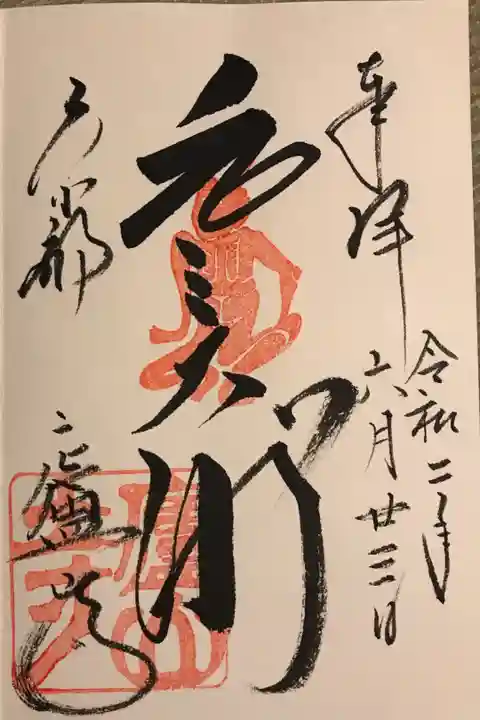 奉拝
令和二年
六月廿三日
元三大師
京都
廬山寺